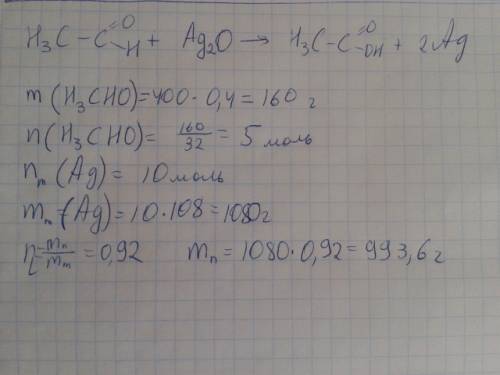 H₃C – C =O –H + Ag₂O → H₃C – C =O –OH + 2Ag
m (H₃CHO) = 400 · 0,4 = 160 г
n (H₃CHO) = 160/32 = 5 моль
nₘ (Ag) = 10 моль
mₘ (Ag) = 10 · 108 = 1080 г
η = mₙ/mₘ = 0,92 mₙ = 1080 · 0,92 = 993,6 г